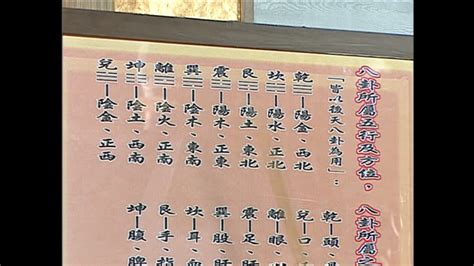 八卦所屬五行及方位。
「皆以後天八卦為用」：
乾—陽金、西北
坎—陽水、正北
艮—陽土、東北
震—陽木、正東
巽—陰木、東南
離—陰火、正南
坤—陰土、西南
兌—陰金、正西
八卦所屬之
乾—頭、
兌—口、
離—眼、
震—足、肝
巽—股、肝
坎—耳、血
艮—手、指
坤—腹、脾